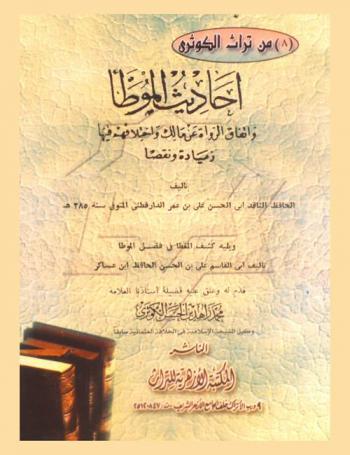 (٨) من تراث الكوثرى
أحاديث الموطأ
واتفاق الرواة عن مالك واختلافهم فيها
زيادة ونقصا
تأليف
الحافظ الناقد ابى الحسن على بن عمر الدارقطنى المتوفى سنة ٣٨٥ هـ
ويليه كشف المغطا فى فضل الموطا
تأليف ابى القاسم على بن الحسن الحافظ ابن عساكر
قدم له وعلق عليه فضيلة أستاذنا العلامه
محمد زاهد بن الحسن الكوثرى
وكيل المشيخة الإسلامية فى الخلافة العثمانية سابقا
الناشر
المكتبة الأزهرية للتراث
٩ درب الأتراك خلف الجامع الأزهر الشريف ت: ٢٥١٢٠٨٤٧